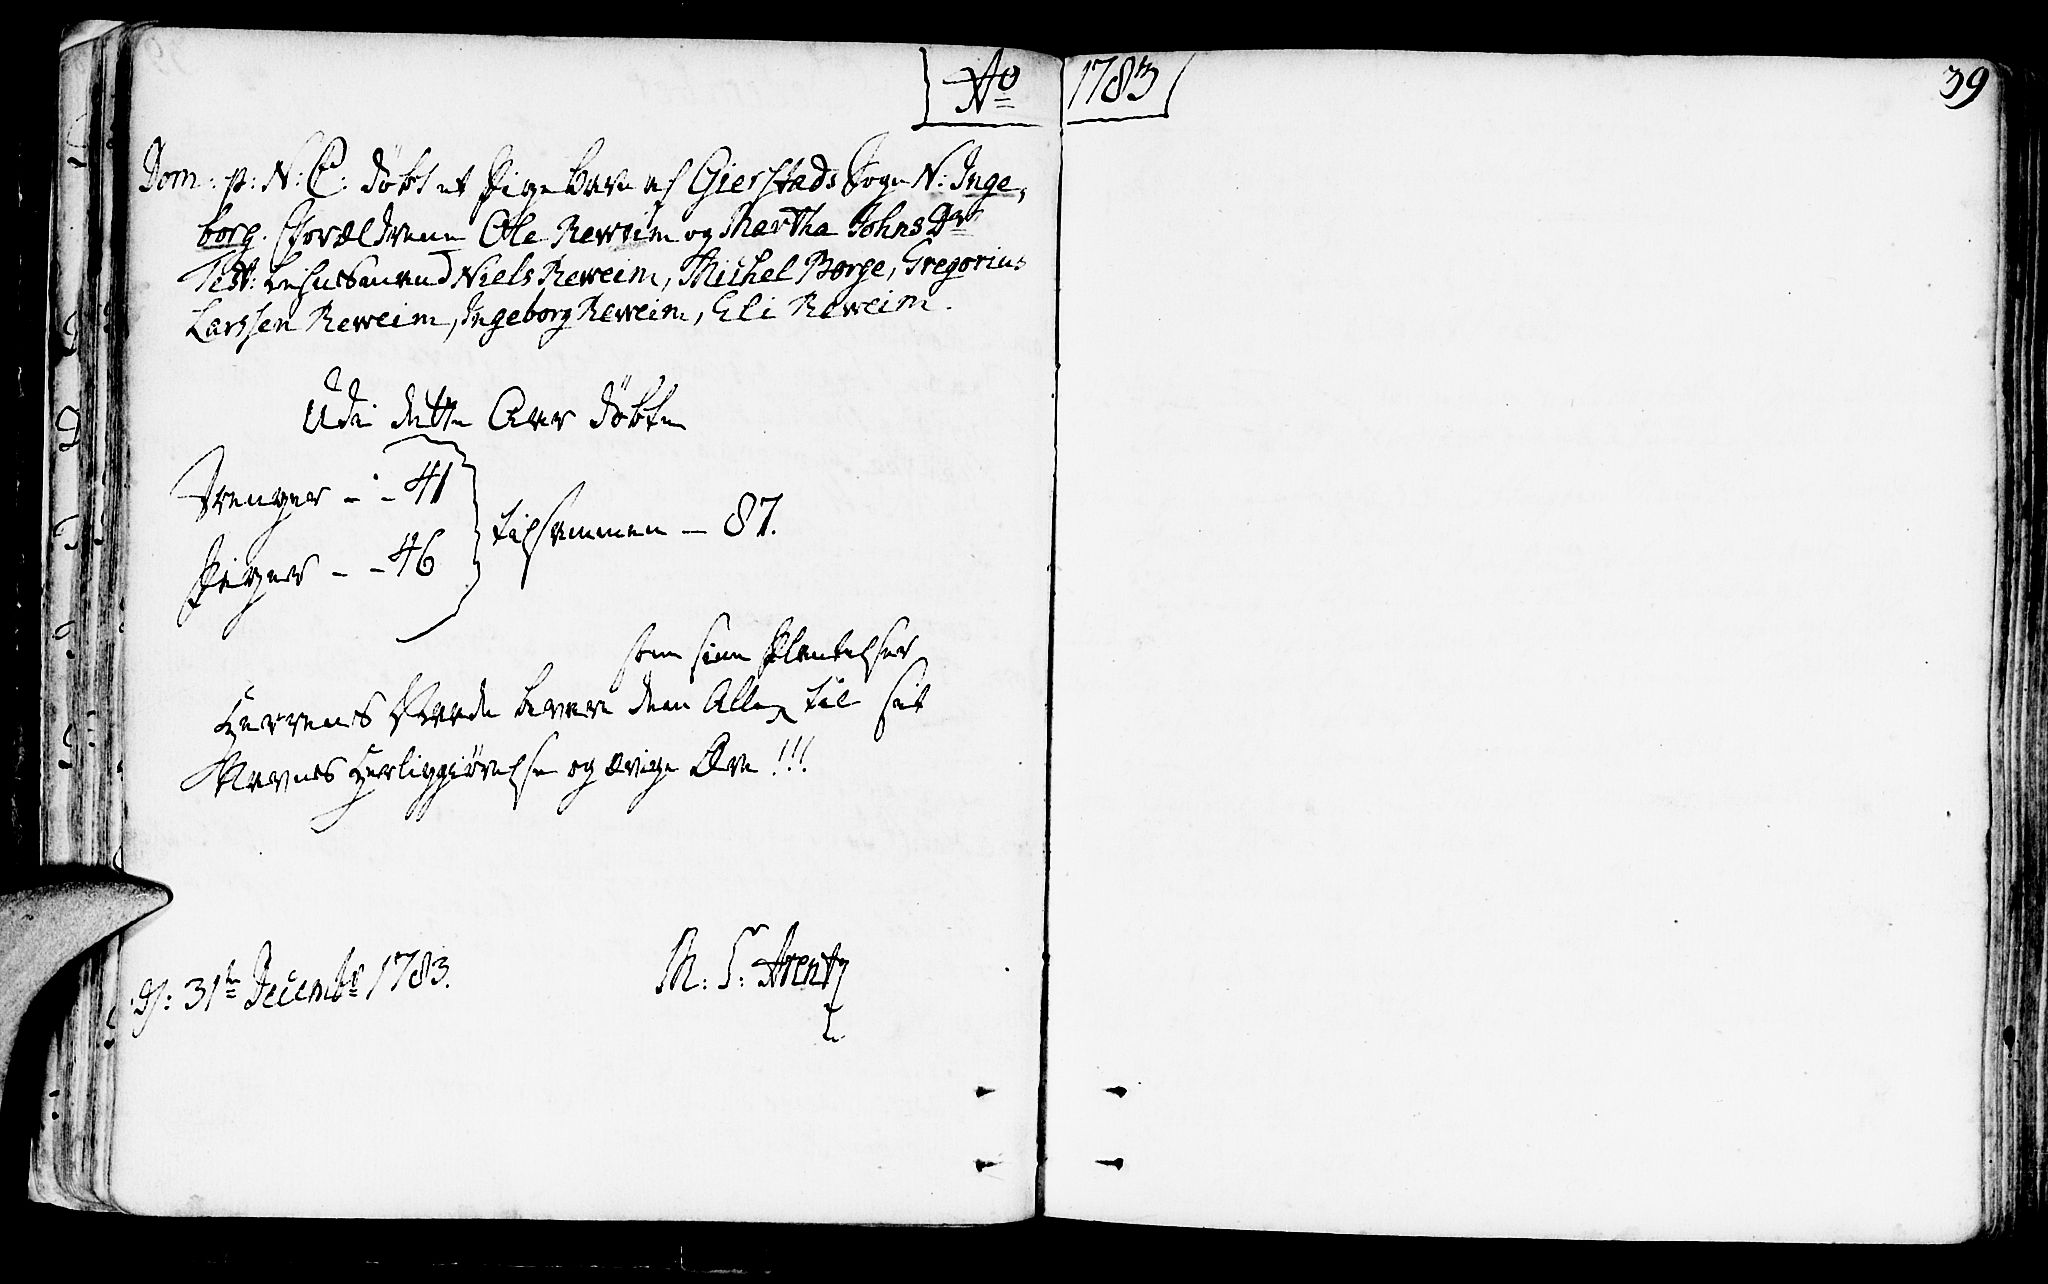 Ao 1783
39
Dom: p: N: C: döbt et Pige barn af Gierstads Sogn N: Inge,
borg. Forældrene Ole Reweim og Martha Johns Dr
Test: Lehnsmand Niels Reweim, Michel Borge, Gregorius
Larssen Reweim, Ingeborg Reweim, Eli Reweim.
Udi dette Aar döbte
Drenger - - 41
tilsammen - 87.
Piger - - 46
som sine Plantelser
Herrens Naade bevare dem Alle til sit
Navns Herliggiörelse og ævige Ære!!!
D: 31te Decembr 1783.
M: S: Arentz